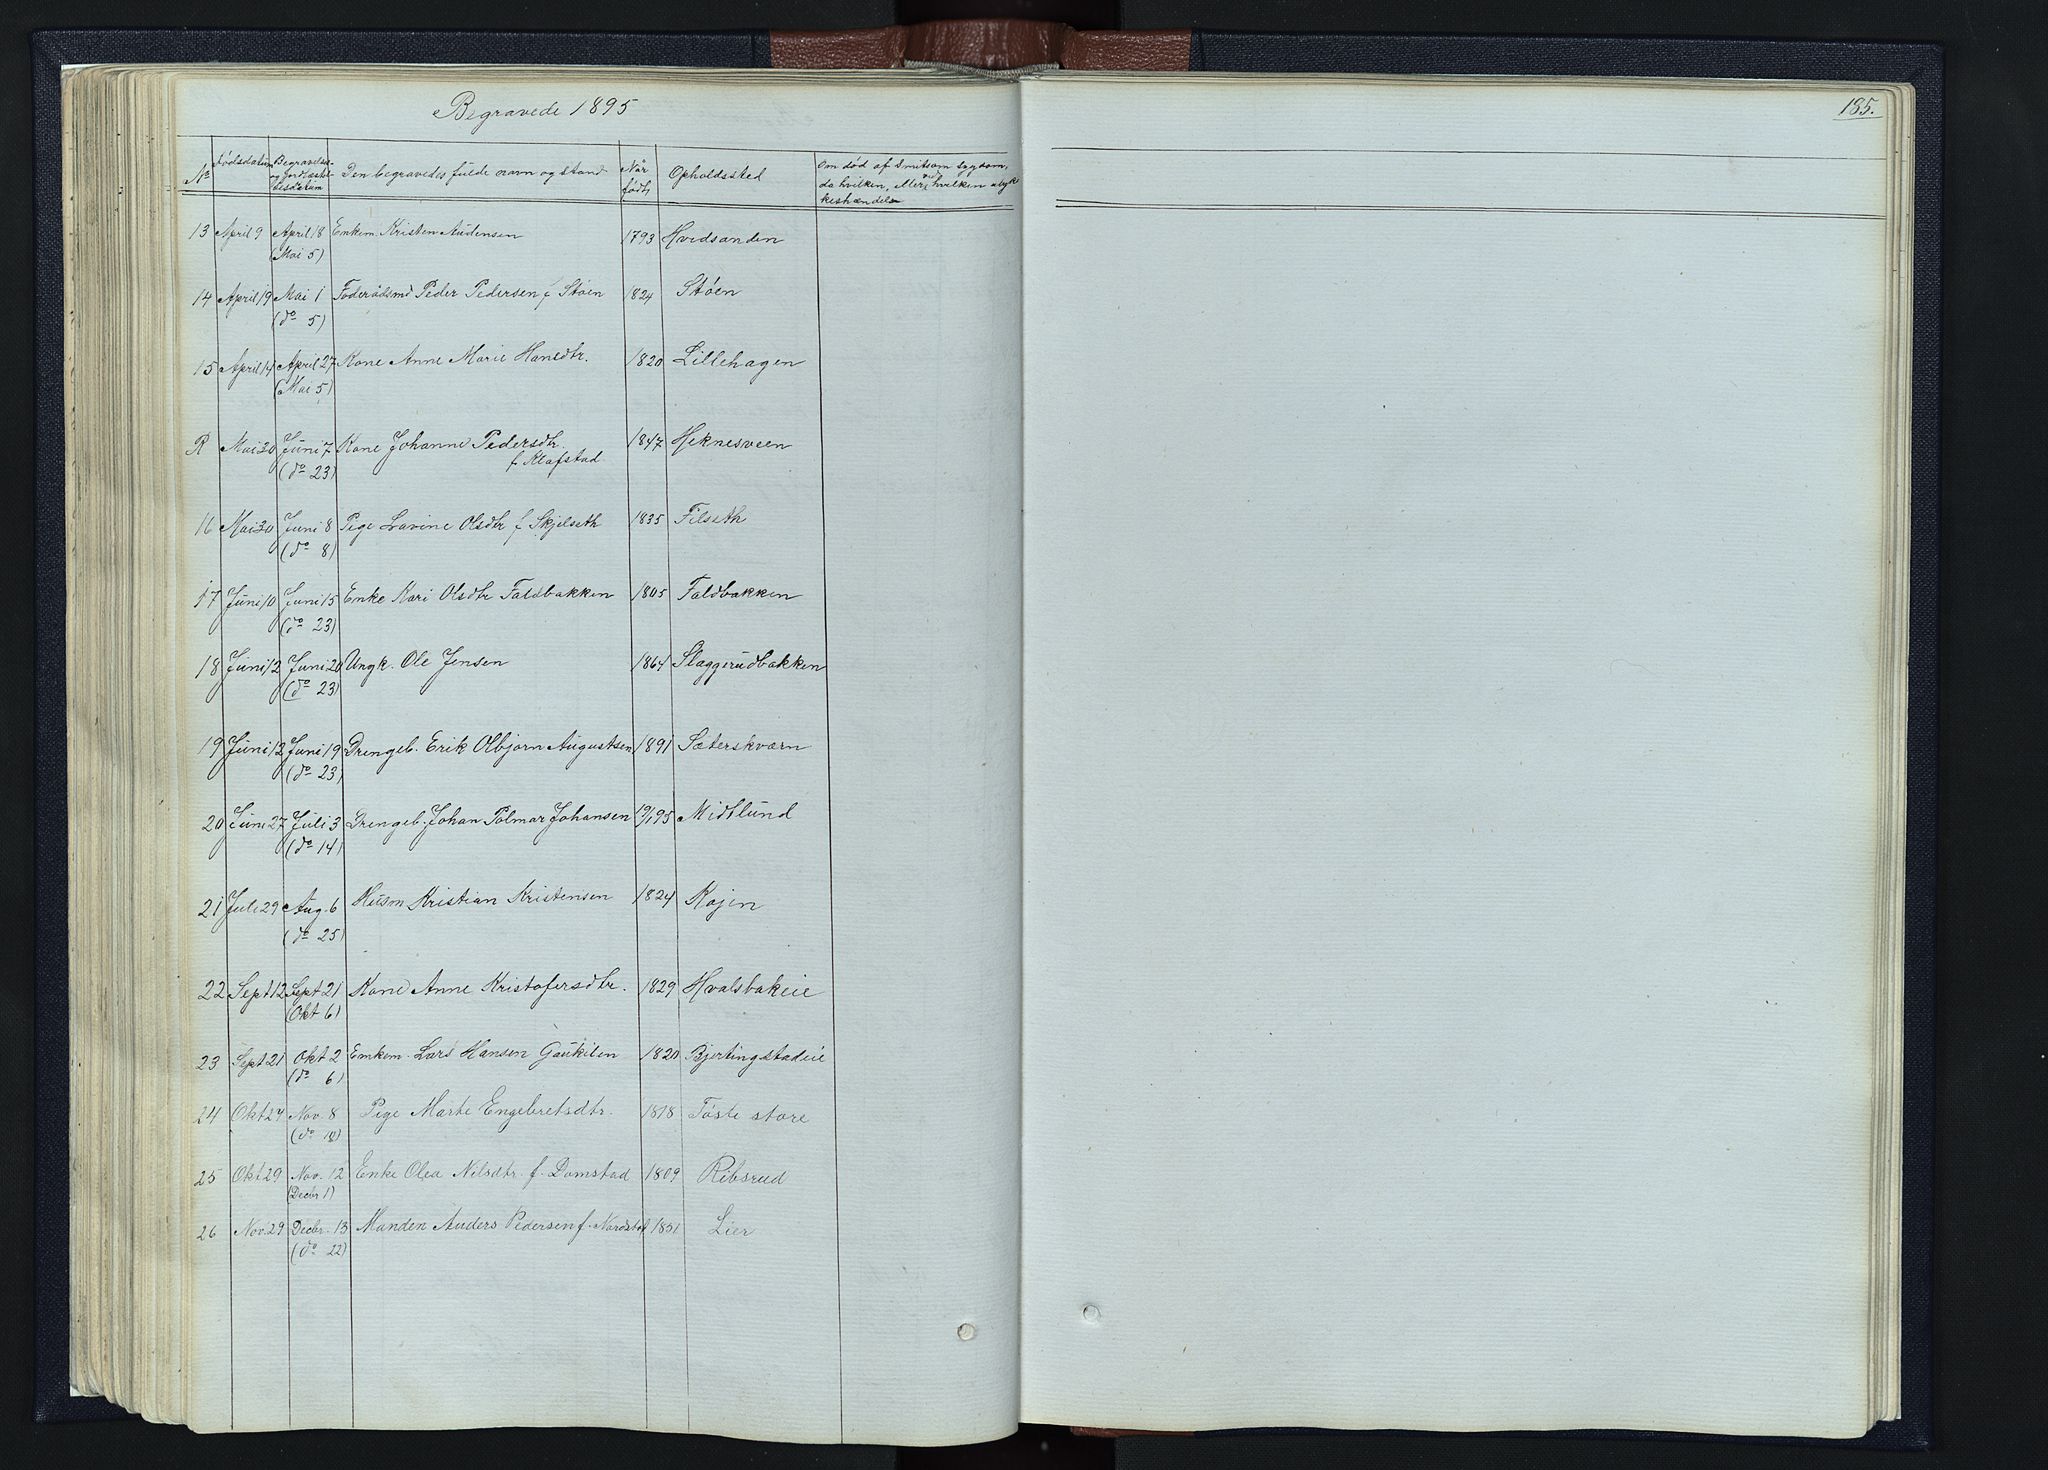 Begravede 1895
185.
No Dødsdatum Begravelses- og Jordfæstelsesdatum Den begravedes fulde navn og stand Når født, Opholdssted Om død af smitsom sygdom, da hvilken, eller ved hvilken ulykkeshændelse
13 April 9 April 18 Enkem. Kristen Audensen 1793 Hvidsanden
(Mai 5)
14 April 19 Mai 1 Føderådsmd Peder Pedersen f Støen 1824 Støen
(do 5)
15 April 14 April 27 Kone Anne Marie Hansdtr. 1820 Lillehagen
(Mai 5)
R Mai 30 Juni 7 Kone Johanne Pedersdtr. 1847 Heknesveen
(do 23) f. Klafstad
16 Mai 30 Juni 8 Pige Lavine Olsdtr f Skjelseth 1835 Filseth
(do 8)
17 Juni 10 Juni 15 Enke Kari Olsdtr Faldbakken 1805 Faldbakken
(do 23)
18 Juni 12 Juni 20 Ungk. Ole Jensen 1864 Slaggerudbakken
(do 23)
19 Juni 12 Juni 19 Drengeb. Erik Olbjørn Augustsen 1891 Sæterskværn
(do 23)
20 Juni 27 Juli 3 Drengeb. Johan Palmar Johansen 19/1 95 Midtlund
(do 14)
21 Juli 29 Aug. 6 Husm Kristian Kristensen 1824 Kojen
(do 25)
22 Sept 12 Sept 21 Kone Anne Kristofersdtr. 1829 Hvalsbakeie
(Okt 6)
23 Sept 21 Okt 2 Enkem. Lars Hansen Gaukilen 1820 Bjertingstadeie
(do 6)
24 Okt 24 Nov. 8 Pige Marte Engebretsdtr. 1818 Tøste store
25 Okt 29 Nov. 12 Enke Olea Nilsdtr. f. Domstad 1809 Ribsrud
(Decbr 1)
26 Nov. 29 Decbr. 13 Manden Anders Pedersen f. 1851 Lier
(do 22)